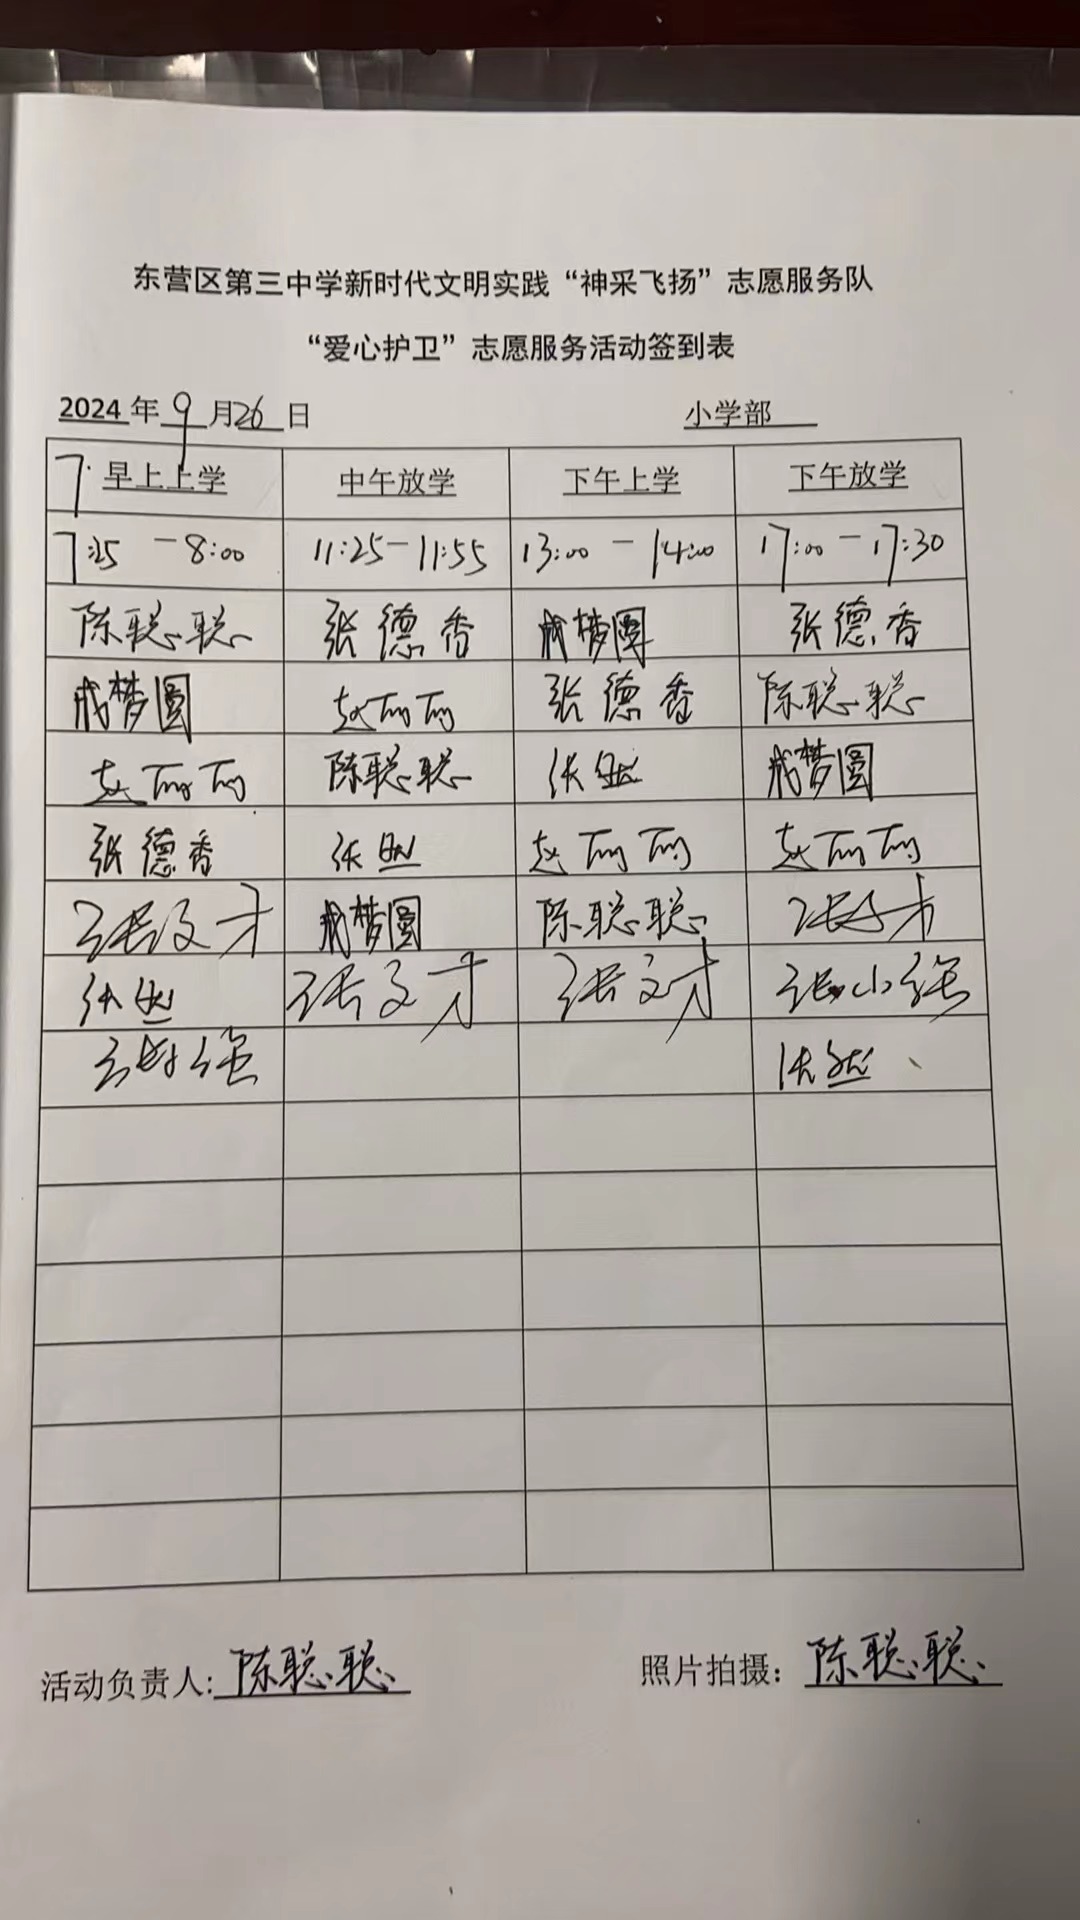 东营区第三中学新时代文明实践“神采飞扬”志愿服务队
“爱心护卫”志愿服务活动签到表
2024 年 9 月 26 日 小学部
7: 早上上学 中午放学 下午上学 下午放学
7:25 - 8:00 11:25 - 11:55 13:00 - 14:00 17:00 - 17:30
陈聪聪 张德香 戒梦圆 张德香
戒梦圆 赵丽丽 张德香 陈聪聪
赵丽丽 陈聪聪 张然 戒梦圆
张德香 张然 赵丽丽 赵丽丽
张文才 戒梦圆 陈聪聪 张文才
张然 张文才 张文才 张小强
张小强 张然
活动负责人: 陈聪聪 照片拍摄: 陈聪聪